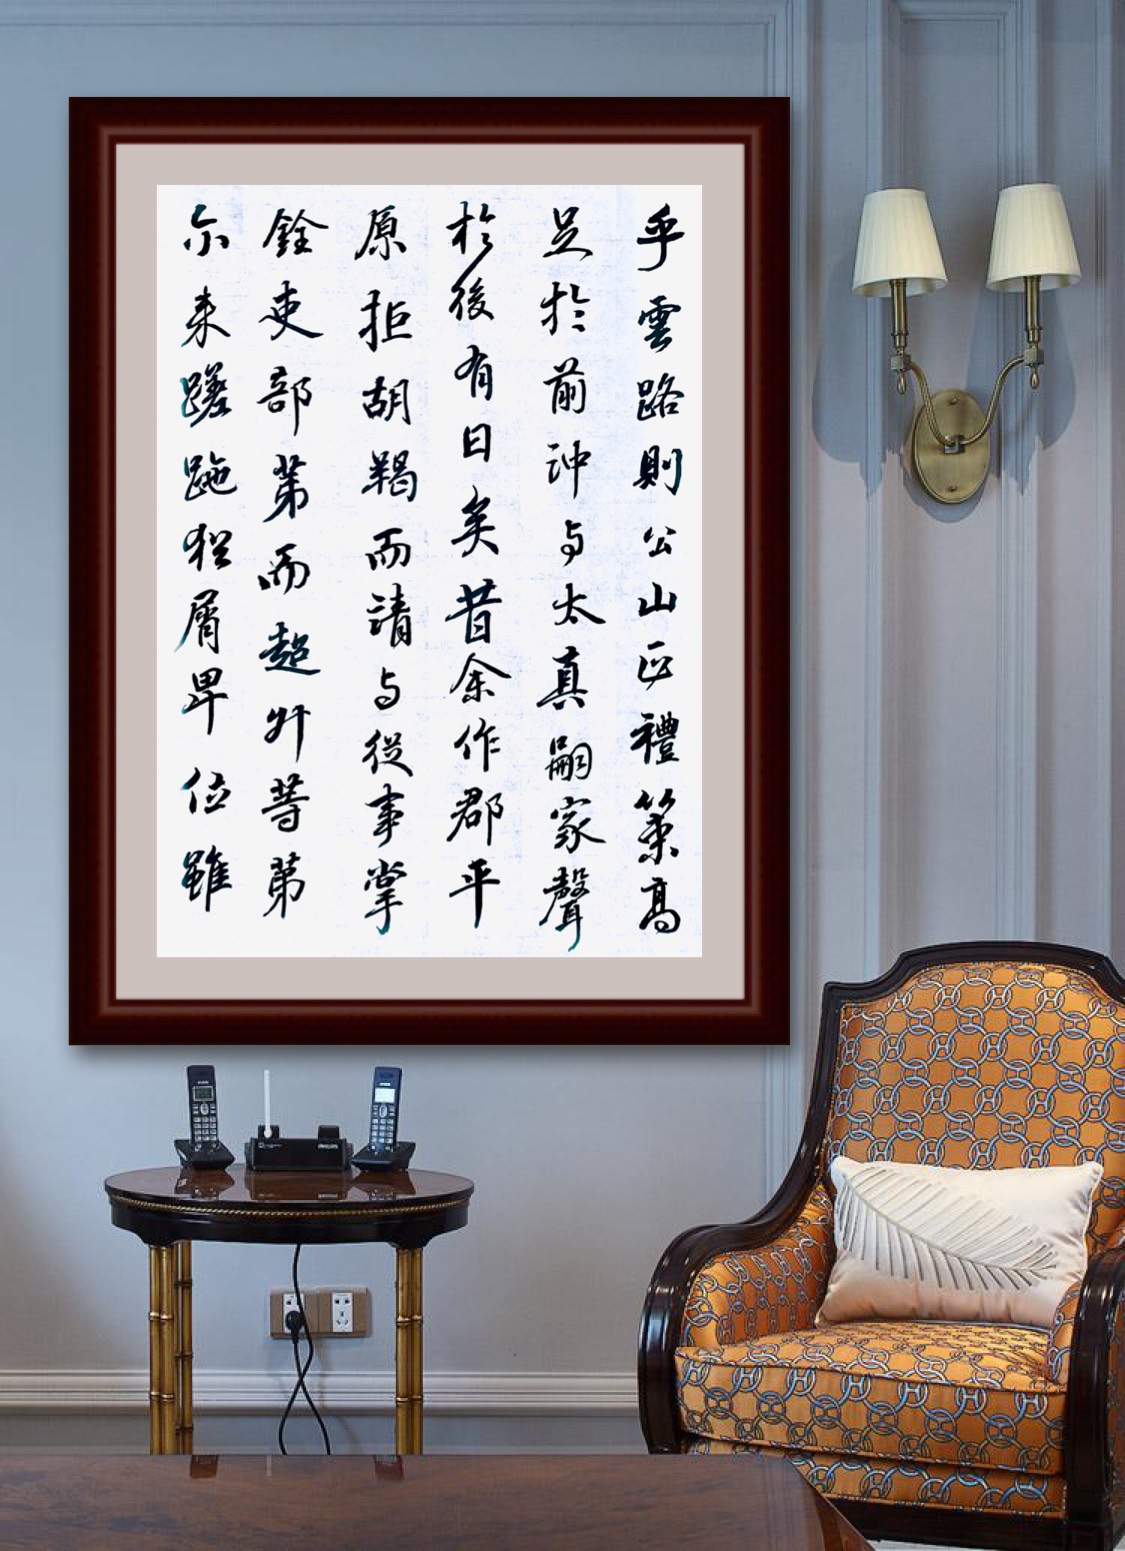 乎雲路則公山正禮策高
足於前沖与太真嗣家聲
於後有日矣昔余作郡平
原拒胡羯而請与從事掌
銓吏部第而超升等第
尔来蹉跎猶屑卑位雖